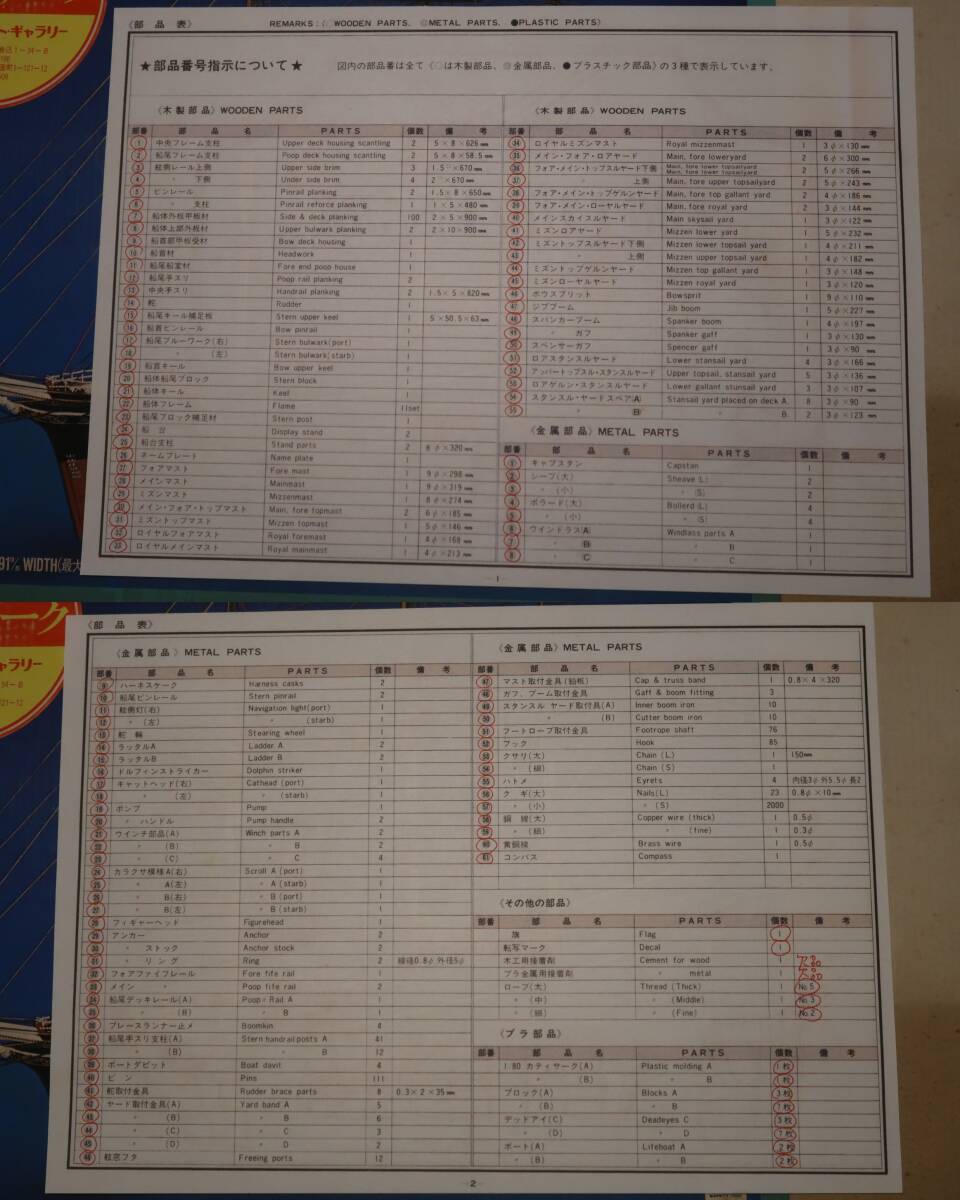 〈部 品 表〉 REMARKS:(○WOODEN PARTS. ◎METAL PARTS. ●PLASTIC PARTS)
★部品番号指示について★ 図内の部品番は全て(○は木製部品、◎金属部品、●プラスチック部品)の3種で表示しています。
〈木製部品〉WOODEN PARTS
部番 部品名 PARTS 個数 備考
1 中央フレーム支柱 Upper deck housing scantling 2 5×8×626㎜
2 船尾フレーム支柱 Poop deck housing scantling 2 5×8×58.5㎜
3 舷側レール上側 Upper side brim 3 1.5×670㎜
4 〃 下側 Under side brim 4 2×670㎜
5 ピンレール Pinrail planking 2 1.5×8×650㎜
6 〃 支柱 Pinrail reforce planking 1 1×5×480㎜
7 船体外板甲板材 Side & deck planking 100 2×5×900㎜
8 船体上部外板材 Upper bulwark planking 2 2×10×900㎜
9 船首部甲板受材 Bow deck housing 1
10 船首材 Headwork 1
11 船尾船室材 Fore end poop house 1
12 船尾手スリ Poop rail planking 2
13 中央手スリ Handrail planking 2 1.5×5×620㎜
14 舵 Rudder 1
15 船尾キール補足板 Stern upper keel 1 5×50.5×63㎜
16 船首ピンレール Bow pinrail 1
17 船尾ブルーワーク(右) Stern bulwark(port) 1
18 〃 (左) Stern bulwark(starb) 1
19 船首キール Bow upper keel 1
20 船体船尾ブロック Stern block 1
21 船体キール Keel 1
22 船体フレーム Flame 11set
23 船尾ブロック補足材 Stern post 1
24 船台 Display stand 2
25 船台支柱 Stand parts 2 6φ×320㎜
26 ネームプレート Name plate 1
27 フォアマスト Fore mast 1 9φ×298㎜
28 メインマスト Mainmast 1 9φ×319㎜
29 ミズンマスト Mizzenmast 1 8φ×274㎜
30 メイン・フォア・トップマスト Main, fore topmast 2 6φ×185㎜
31 ミズントップマスト Mizzen topmast 1 5φ×146㎜
32 ロイヤルフォアマスト Royal foremast 1 4φ×168㎜
33 ロイヤルメインマスト Royal mainmast 1 4φ×213㎜
〈木製部品〉WOODEN PARTS
部番 部品名 PARTS 個数 備考
34 ロイヤルミズンマスト Royal mizzenmast 1 3φ×130㎜
35 メイン・フォア・ロアヤード Main, fore loweryard 2 6φ×300㎜
36 フォア・メイン・トップスルヤード下側 Main, fore lower topsailyard 2 5φ×266㎜
37 〃 上側 Main, fore upper topsailyard 2 5φ×243㎜
38 フォア・メイン・トップゲルンヤード Main, fore top gallant yard 2 4φ×186㎜
39 フォア・メイン・ローヤルヤード Main, fore royal yard 2 3φ×144㎜
40 メインスカイスルヤード Main skysail yard 1 3φ×122㎜
41 ミズンロアヤード Mizzen lower yard 1 5φ×232㎜
42 ミズントップスルヤード下側 Mizzen lower topsail yard 1 4φ×211㎜
43 〃 上側 Mizzen upper topsail yard 1 4φ×182㎜
44 ミズントップゲルンヤード Mizzen top gallant yard 1 3φ×148㎜
45 ミズンローヤルヤード Mizzen royal yard 1 3φ×120㎜
46 ボウスプリット Bowsprit 1 9φ×110㎜
47 ジブブーム Jib boom 1 5φ×227㎜
48 スパンカーブーム Spanker boom 1 4φ×197㎜
49 〃 ガフ Spanker gaff 1 3φ×130㎜
50 スペンサーガフ Spencer gaff 1 3φ×90㎜
51 ロアスタンスルヤード Lower stansail yard 4 3φ×166㎜
52 アッパートップスル・スタンスルヤード Upper topsail, stansail yard 5 3φ×136㎜
53 ロアゲルン・スタンスルヤード Lower gallant stunsail yard 3 3φ×107㎜
54 スタンスル・ヤードスペアA Stansail yard placed on deck A. 8 3φ×90㎜
55 〃 B 〃 B. 2 3φ×123㎜
〈金属部品〉METAL PARTS
部番 部品名 PARTS 個数 備考
1 キャプスタン Capstan 1
2 シーブ(大) Sheave(L) 2
3 〃 (小) 〃 (S) 2
4 ボラード(大) Bollerd(L) 4
5 〃 (小) 〃 (S) 4
6 ウインドラスA Windlass parts A 1
7 〃 B 〃 B 1
8 〃 C 〃 C 1
1
91% WIDTH(最大
〈部 品 表〉
〈金属部品〉METAL PARTS
部番 部品名 PARTS 個数 備考
9 ハーネスケーク Harness casks 2
10 船尾ピンレール Stern pinrail 2
11 舷側灯(右) Navigation light(port) 1
12 〃 (左) 〃 (starb) 1
13 舵輪 Stearing wheel 1
14 ラッタルA Ladder A 2
15 ラッタルB Ladder B 2
16 ドルフィンストライカー Dolphin striker 1
17 キャットヘッド(右) Cathead (port) 1
18 〃 (左) 〃 (starb) 1
19 ポンプ Pump 1
20 〃 ハンドル Pump handle 2
21 ウインチ部品(A) Winch parts A 2
22 〃 (B) 〃 B 2
23 〃 (C) 〃 C 4
24 カラクサ模様A(右) Scroll A (port) 1
25 〃 A(左) 〃 A (starb) 1
26 〃 B(右) 〃 B (port) 1
27 〃 B(左) 〃 B (starb) 1
28 フィギャーヘッド Figurehead 1
29 アンカー Anchor 2
30 〃 ストック Anchor stock 2
31 〃 リング Ring 2 線径0.8φ 外径5φ
32 フォアファイフレール Fore fife rail 1
33 メイン 〃 Poop fife rail 2
34 船尾デッキレール(A) Poop Rail A 1
35 〃 (B) 〃 B 1
36 ブレースランナー止メ Boomkin 4
37 船尾手スリ支柱(A) Stern handrail posts A 41
38 〃 (B) 〃 B 12
39 ボートダビット Boat davit 4
40 ピン Pins 111
41 舵取付金具 Rudder brace parts 8 0.3×2×35㎜
42 ヤード取付金具(A) Yard band A 5
43 〃 (B) 〃 B 6
44 〃 (C) 〃 C 3
45 〃 (D) 〃 D 2
46 舷窓フタ Freeing ports 12
〈金属部品〉METAL PARTS
部番 部品名 PARTS 個数 備考
47 マスト取付金具(鉛板) Cap & truss band 1 0.8×4×320
48 ガフ、ブーム取付金具 Gaff & boom fitting 3
49 スタンスル ヤード取付具(A) Inner boom iron 10
50 〃 (B) Cutter boom iron 10
51 フートロープ取付金具 Footrope shaft 76
52 フック Hook 85
53 クサリ(大) Chain (L) 1 150㎜
54 〃 (細) Chain (S) 1
55 ハトメ Eyrets 4 内径3φ外5.5φ長2
56 クギ(大) Nails(L) 23 0.8φ×10㎜
57 〃 (小) 〃 (S) 2000
58 銅線(大) Copper wire (thick) 1 0.5φ
59 〃 (細) 〃 (fine) 1 0.3φ
60 黄銅線 Brass wire 1 0.5φ
61 コンパス Compass 1
〈その他の部品〉
部番 部品名 PARTS 個数 備考
旗 Flag 1
転写マーク Decal 1
木工用接着剤 Cement for wood 1
プラ金属用接着剤 〃 metal 1
ロープ(太) Thread (Thick) 1 No.5
〃 (中) 〃 (Middle) 1 No.3
〃 (細) 〃 (Fine) 1 No.2
〈プラ部品〉
部番 部品名 PARTS 個数 備考
1/80 カティサーク(A) Plastic molding A 1枚
〃 (B) 〃 B 1枚
ブロック(A) Blocks A 3枚
〃 (B) 〃 B 1枚
デッドアイ(C) Deadeyes C 3枚
〃 (D) 〃 D 1枚
ボート(A) Lifeboat A 2枚
〃 (B) 〃 B 2枚
2